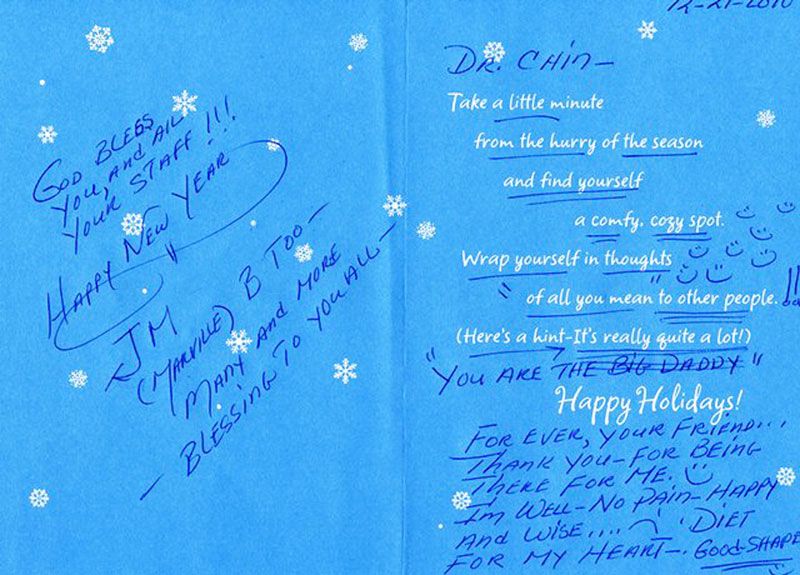 God Bless
You, and All
Your Staff!!!
Happy New Year
JM B Too—
(Marville)
Many and More
— Blessing to You All —
12-21-2010
Dr. Chin—
Take a little minute
from the hurry of the season
and find yourself
a comfy, cozy spot.
Wrap yourself in thoughts
"of all you mean" to other people.!!
(Here's a hint-It's really quite a lot!)
"You are the Big Daddy"
Happy Holidays!
For ever, your friend...
Thank you—for being
there for me.
I'm well—no pain—happy
and wise.... Diet
for my heart—. Good-shape